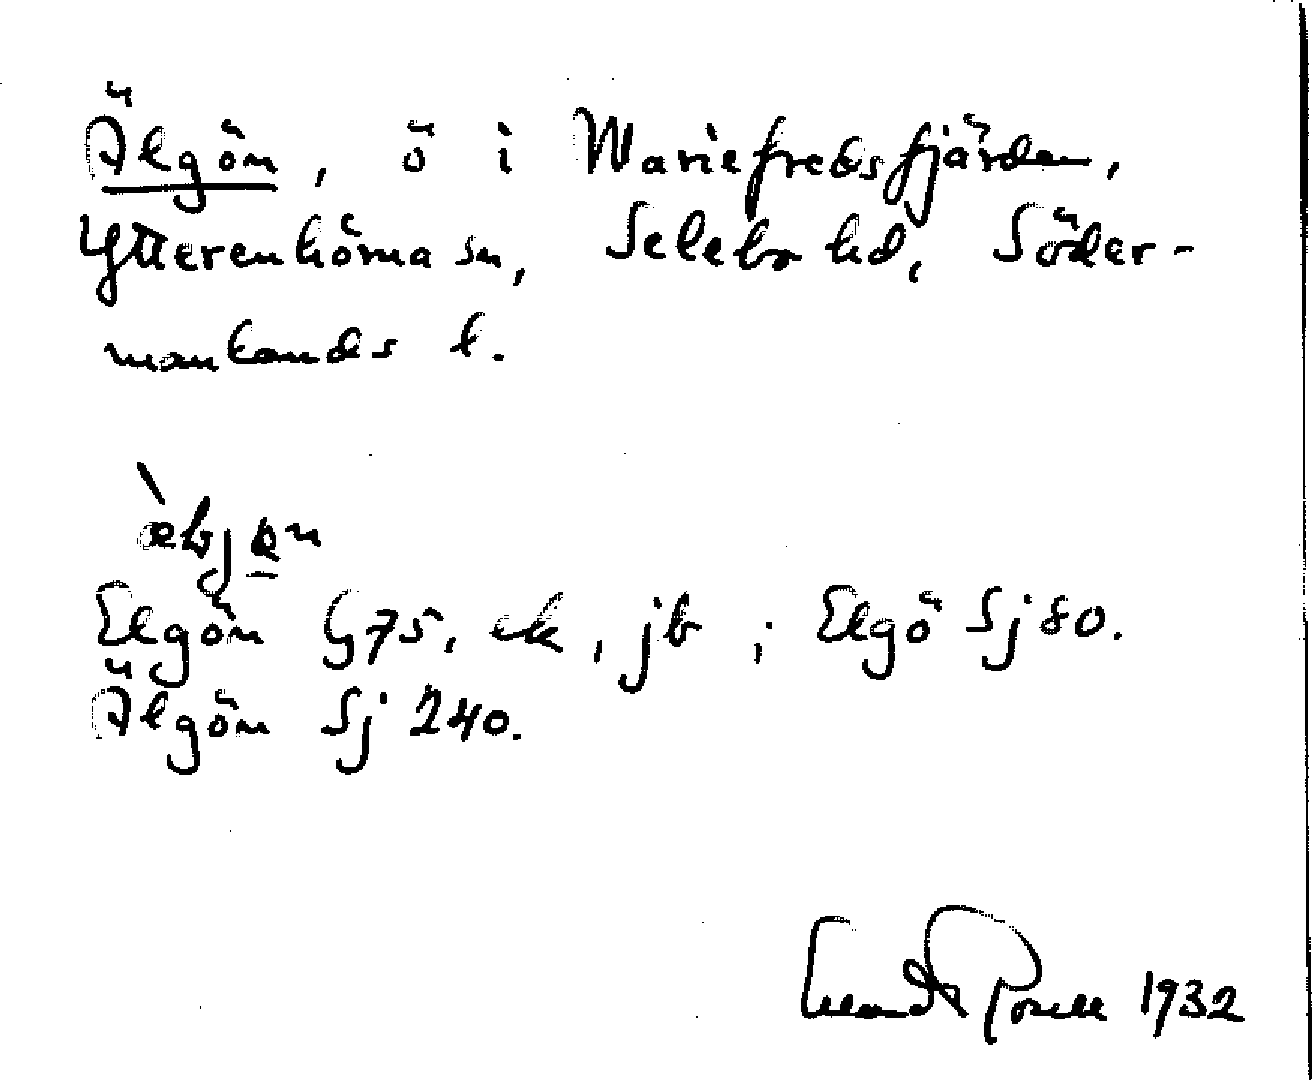 Älgön, ö i Mariefredsfjärden,
Ytterenhörna sn, Selebo hd, Söder-
manlands l.
Elgön G75, ek, jb; Elgö Sj 80.
Älgön Sj 240.
Erland Rosell 1932